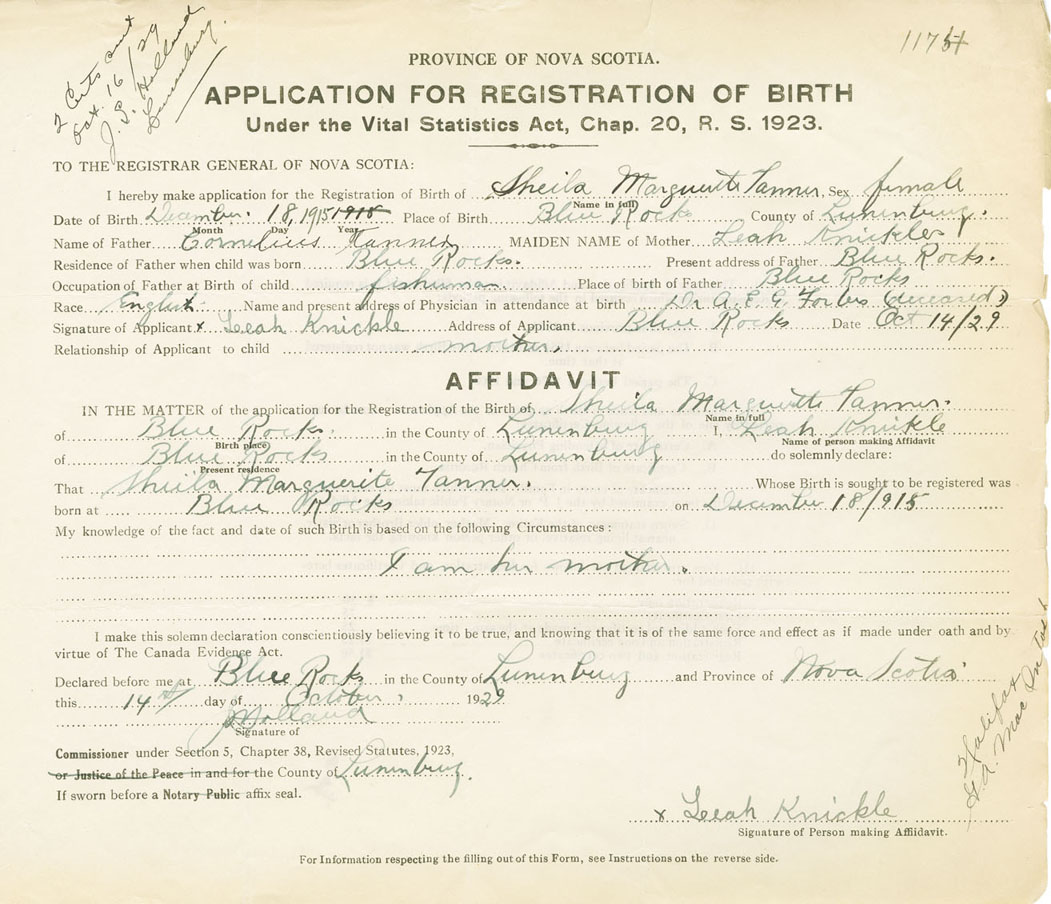 2 Certs sent
Oct. 16/29
J. S. Holland
Lunenburg.
1175
PROVINCE OF NOVA SCOTIA.
APPLICATION FOR REGISTRATION OF BIRTH
Under the Vital Statistics Act, Chap. 20, R. S. 1923.
TO THE REGISTRAR GENERAL OF NOVA SCOTIA:
I hereby make application for the Registration of Birth of Sheila Marguerite Tanner. Sex female
Name in full
Date of Birth December. 18, 1915 1915 Place of Birth Blue Rocks County of Lunenburg.
Month Day Year
Name of Father Cornelius Tanner MAIDEN NAME of Mother Leah Knickle
Residence of Father when child was born Blue Rocks. Present address of Father Blue Rocks.
Occupation of Father at Birth of child fisherman Place of birth of Father Blue Rocks
Race English Name and present address of Physician in attendance at birth Dr A. E. G. Forbes (deceased)
Signature of Applicant x Leeah Knickle Address of Applicant Blue Rocks Date Oct 14/29
Relationship of Applicant to child mother.
AFFIDAVIT
IN THE MATTER of the application for the Registration of the Birth of Sheila Marguerite Tanner.
Name in full
of Blue Rocks. in the County of Lunenburg I, Leah Knickle
Birth place Name of person making Affidavit
of Blue Rocks in the County of Lunenburg do solemnly declare:
Present residence
That Sheila Marguerite Tanner. Whose Birth is sought to be registered was
born at Blue Rocks on December 18/915
My knowledge of the fact and date of such Birth is based on the following Circumstances:
I am her mother.
I make this solemn declaration conscientiously believing it to be true, and knowing that it is of the same force and effect as if made under oath and by
virtue of The Canada Evidence Act.
Declared before me at Blue Rocks in the County of Lunenburg and Province of Nova Scotia
this 14th day of October. 1929
Holland
Signature of
Commissioner under Section 5, Chapter 38, Revised Statutes, 1923,
or Justice of the Peace in and for the County of Lunenburg.
If sworn before a Notary Public affix seal.
Halifax
x Leeah Knickle
Signature of Person making Affidavit.
For Information respecting the filling out of this Form, see Instructions on the reverse side.